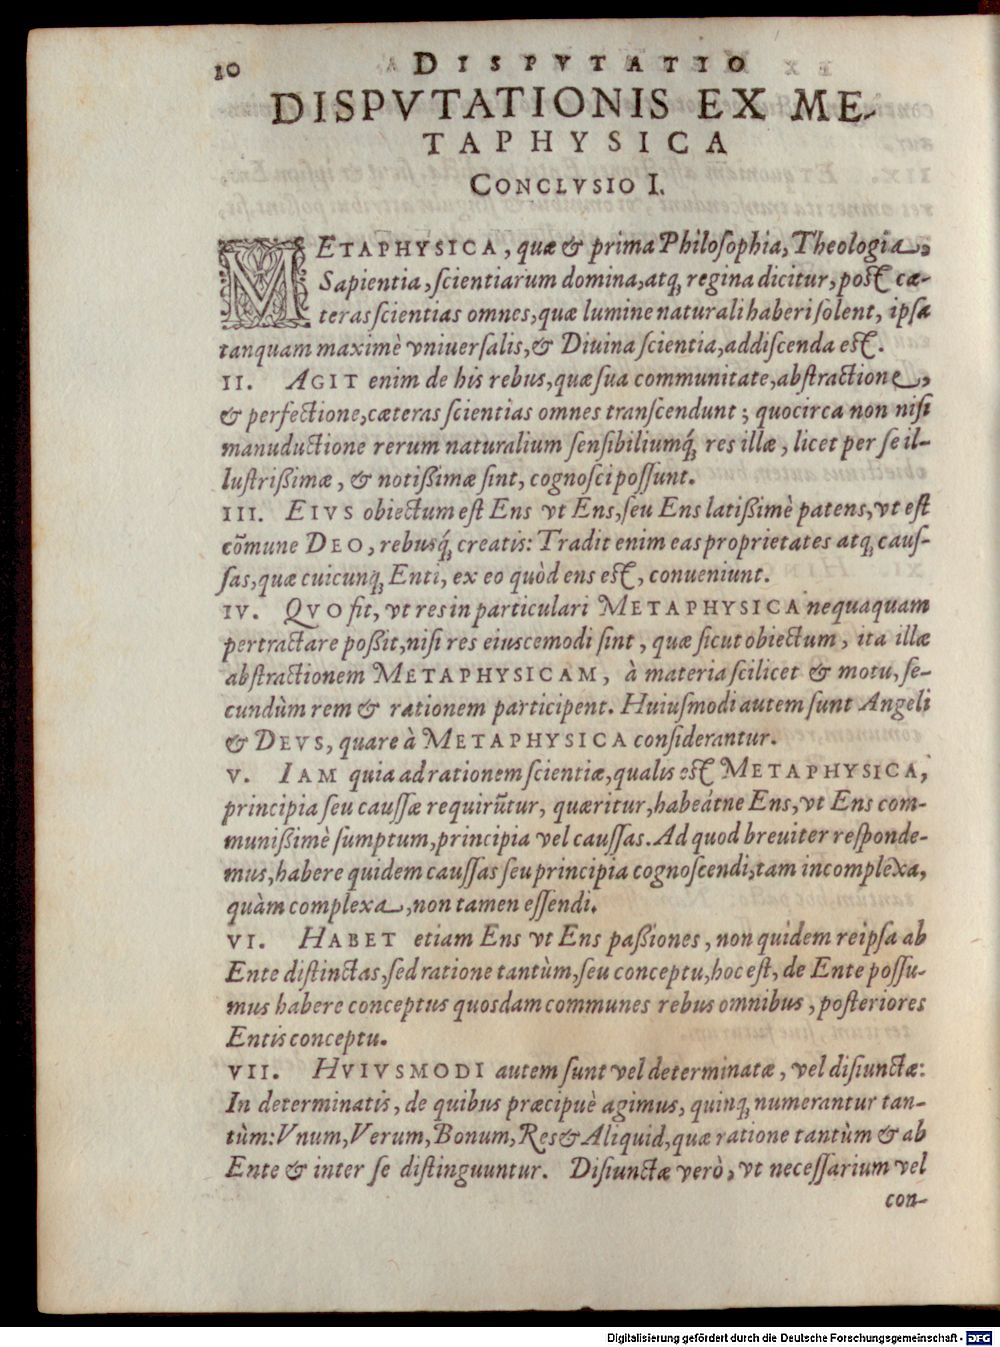 10 DISPVTATIO
DISPVTATIONIS EX ME-
TAPHYSICA
CONCLVSIO I.
METAPHYSICA, quæ & prima Philoſophia, Theologia,
Sapientia, ſcientiarum domina, atq́ꝫ regina dicitur, poſt cæ-
teras ſcientias omnes, quæ lumine naturali haberi ſolent, ipſa
tanquam maximè vniuerſalis, & Diuina ſcientia, addiſcenda eſt.
II. AGIT enim de his rebus, quæ ſua communitate, abſtractione,
& perfectione, cæteras ſcientias omnes tranſcendunt; quocirca non niſi
manuductione rerum naturalium ſenſibiliumq́ꝫ res illæ, licet per ſe il-
luſtrißimæ, & notißimæ ſint, cognoſci poſſunt.
III. EIVS obiectum eſt Ens vt Ens, ſeu Ens latißimè patens, vt eſt
cõmune DEO, rebusq́ꝫ creatis: Tradit enim eas proprietates atqꝫ cauſ-
ſas, quæ cuicunqꝫ Enti, ex eo quòd ens eſt, conueniunt.
IV. QVO fit, vt res in particulari METAPHYSICA nequaquam
pertractare poßit, niſi res eiuscemodi ſint, quæ ſicut obiectum, ita illæ
abſtractionem METAPHYSICAM, à materia ſcilicet & motu, ſe-
cundùm rem & rationem participent. Huiuſmodi autem ſunt Angeli
& DEVS, quare à METAPHYSICA conſiderantur.
V. IAM quia ad rationem ſcientiæ, qualis eſt METAPHYSICA,
principia ſeu cauſſæ requirũtur, quæritur, habeátne Ens, vt Ens com-
munißimè ſumptum, principia vel cauſſas. Ad quod breuiter reſponde-
mus, habere quidem cauſſas ſeu principia cognoſcendi, tam incomplexa,
quàm complexa, non tamen eſſendi.
VI. HABET etiam Ens vt Ens paßiones, non quidem reipſa ab
Ente diſtinctas, ſed ratione tantùm, ſeu conceptu, hoc eſt, de Ente poſſu-
mus habere conceptus quosdam communes rebus omnibus, poſteriores
Entis conceptu.
VII. HVIVSMODI autem ſunt vel determinatæ, vel diſiunctæ:
In determinatis, de quibus præcipuè agimus, quinqꝫ numerantur tan-
tùm: Vnum, Verum, Bonum, Res & Aliquid, quæ ratione tantùm & ab
Ente & inter ſe diſtinguuntur. Diſiunctæ verò, vt neceſſarium vel
con-
Digitalisierung gefördert durch die Deutsche Forschungsgemeinschaft - DFG